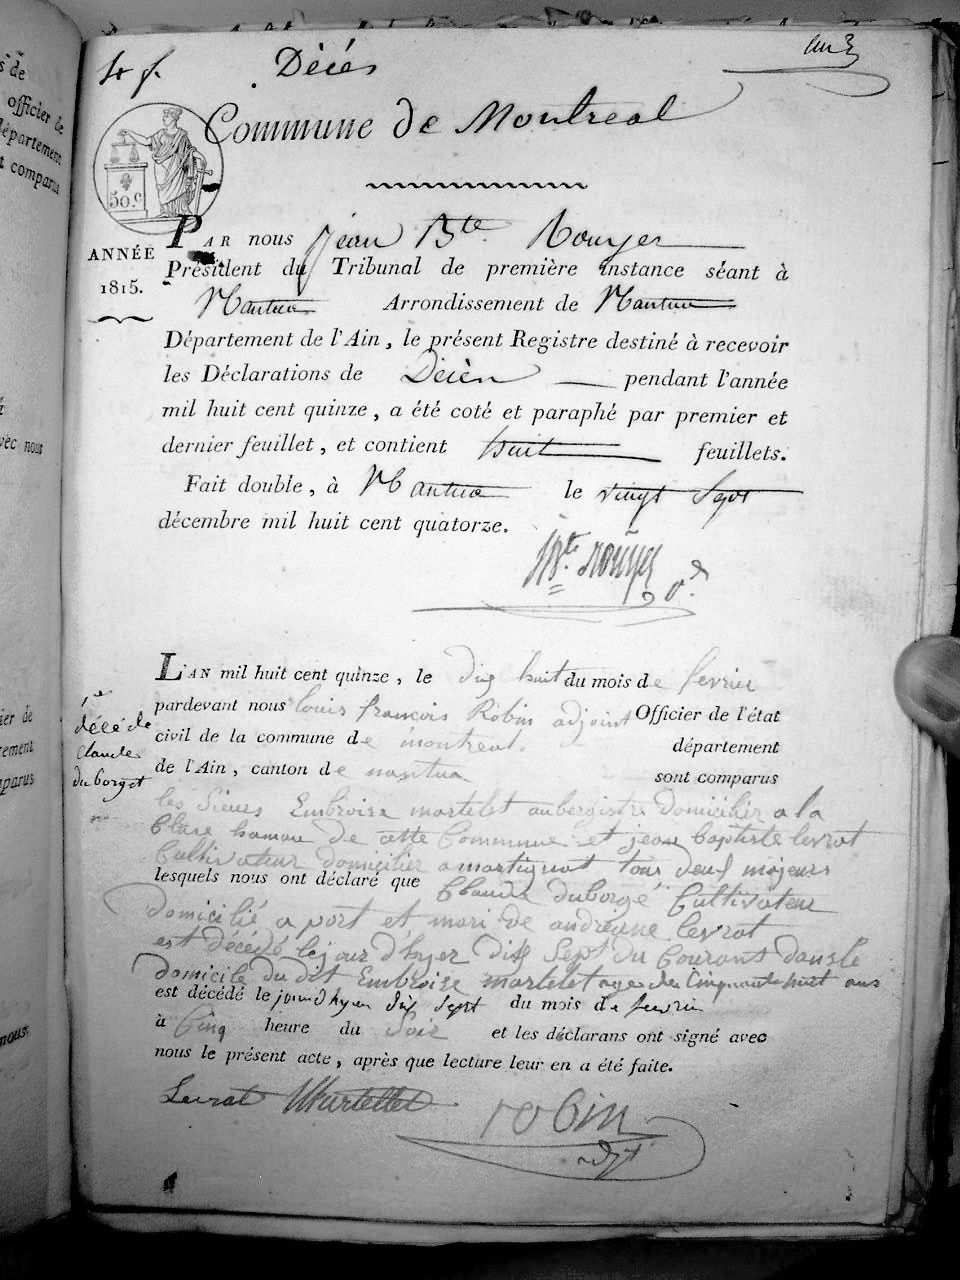 1er f. Décés un 3
Commune de Montreal
50.c
ANNÉE
1815.
PAR nous Jean Bte. Rouyer
Président du Tribunal de première instance séant à
Nantua Arrondissement de Nantua
Département de l'Ain, le présent Registre destiné à recevoir
les Déclarations de Décès pendant l'année
mil huit cent quinze, a été coté et paraphé par premier et
dernier feuillet, et contient huit feuillets.
Fait double, à Nantua le vingt Sept
décembre mil huit cent quatorze.
JBte. Rouyer
L'AN mil huit cent quinze, le dix huit du mois de fevrier
pardevant nous louis françois Robin adjoint Officier de l'état
civil de la commune de montreal. département
de l'Ain, canton de nantua sont comparus
décé de
Claude
duborget
les Sieurs Embroise martelet aubergiste domicilier a la
Cluse hamau de cette Commune et jean baptiste levrat
Cultivateur domicilier a martignat tous deux majeurs
lesquels nous ont déclaré que Claude duborgé Cultivateur
domicilié a port et mari de andréanne levrat
est décédé lejour d'hyer dix Sept du Courant dans le
domicile du dit Embroise martelet age de Cinquante huit ans
est décédé le jour d'hyer dix sept du mois de fevrier
à Cinq heure du Soir et les déclarans ont signé avec
nous le présent acte, après que lecture leur en a été faite.
Levrat Martellet robin
adjt
s de
officier de
département
t comparus
avec nous
ier de
tement
mparus
nous.